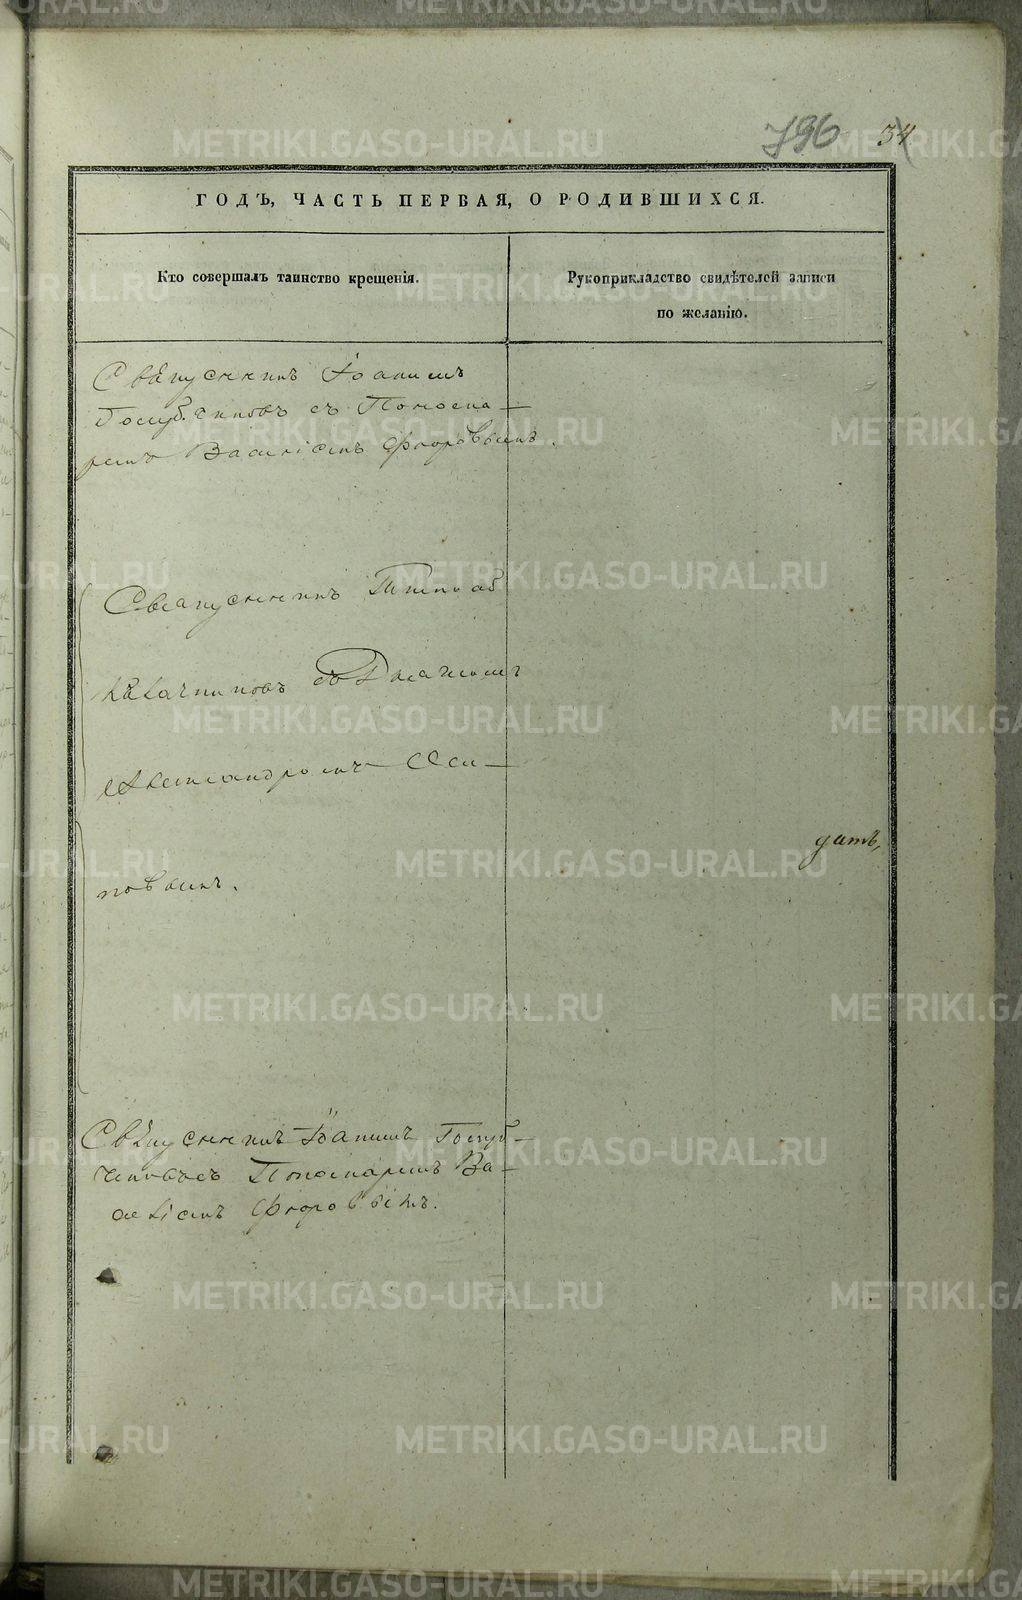 796 34
ГОДЪ, ЧАСТЬ ПЕРВАЯ, О РОДИВШИХСЯ.
Кто совершалъ таинство крещенія.
Рукоприкладство свидѣтелей записи
по желанію.
Священникъ Іоаннъ
Голубчиковъ съ Понома-
ремъ Василіемъ Флоровымъ.
Священникъ
съ Діакономъ
Александромъ Оси-
повымъ.
дать,
Священникъ Іоаннъ Голуб-
чиковъ съ Пономаремъ Ва-
силіемъ Флоровымъ.
METRIKI.GASO-URAL.RU